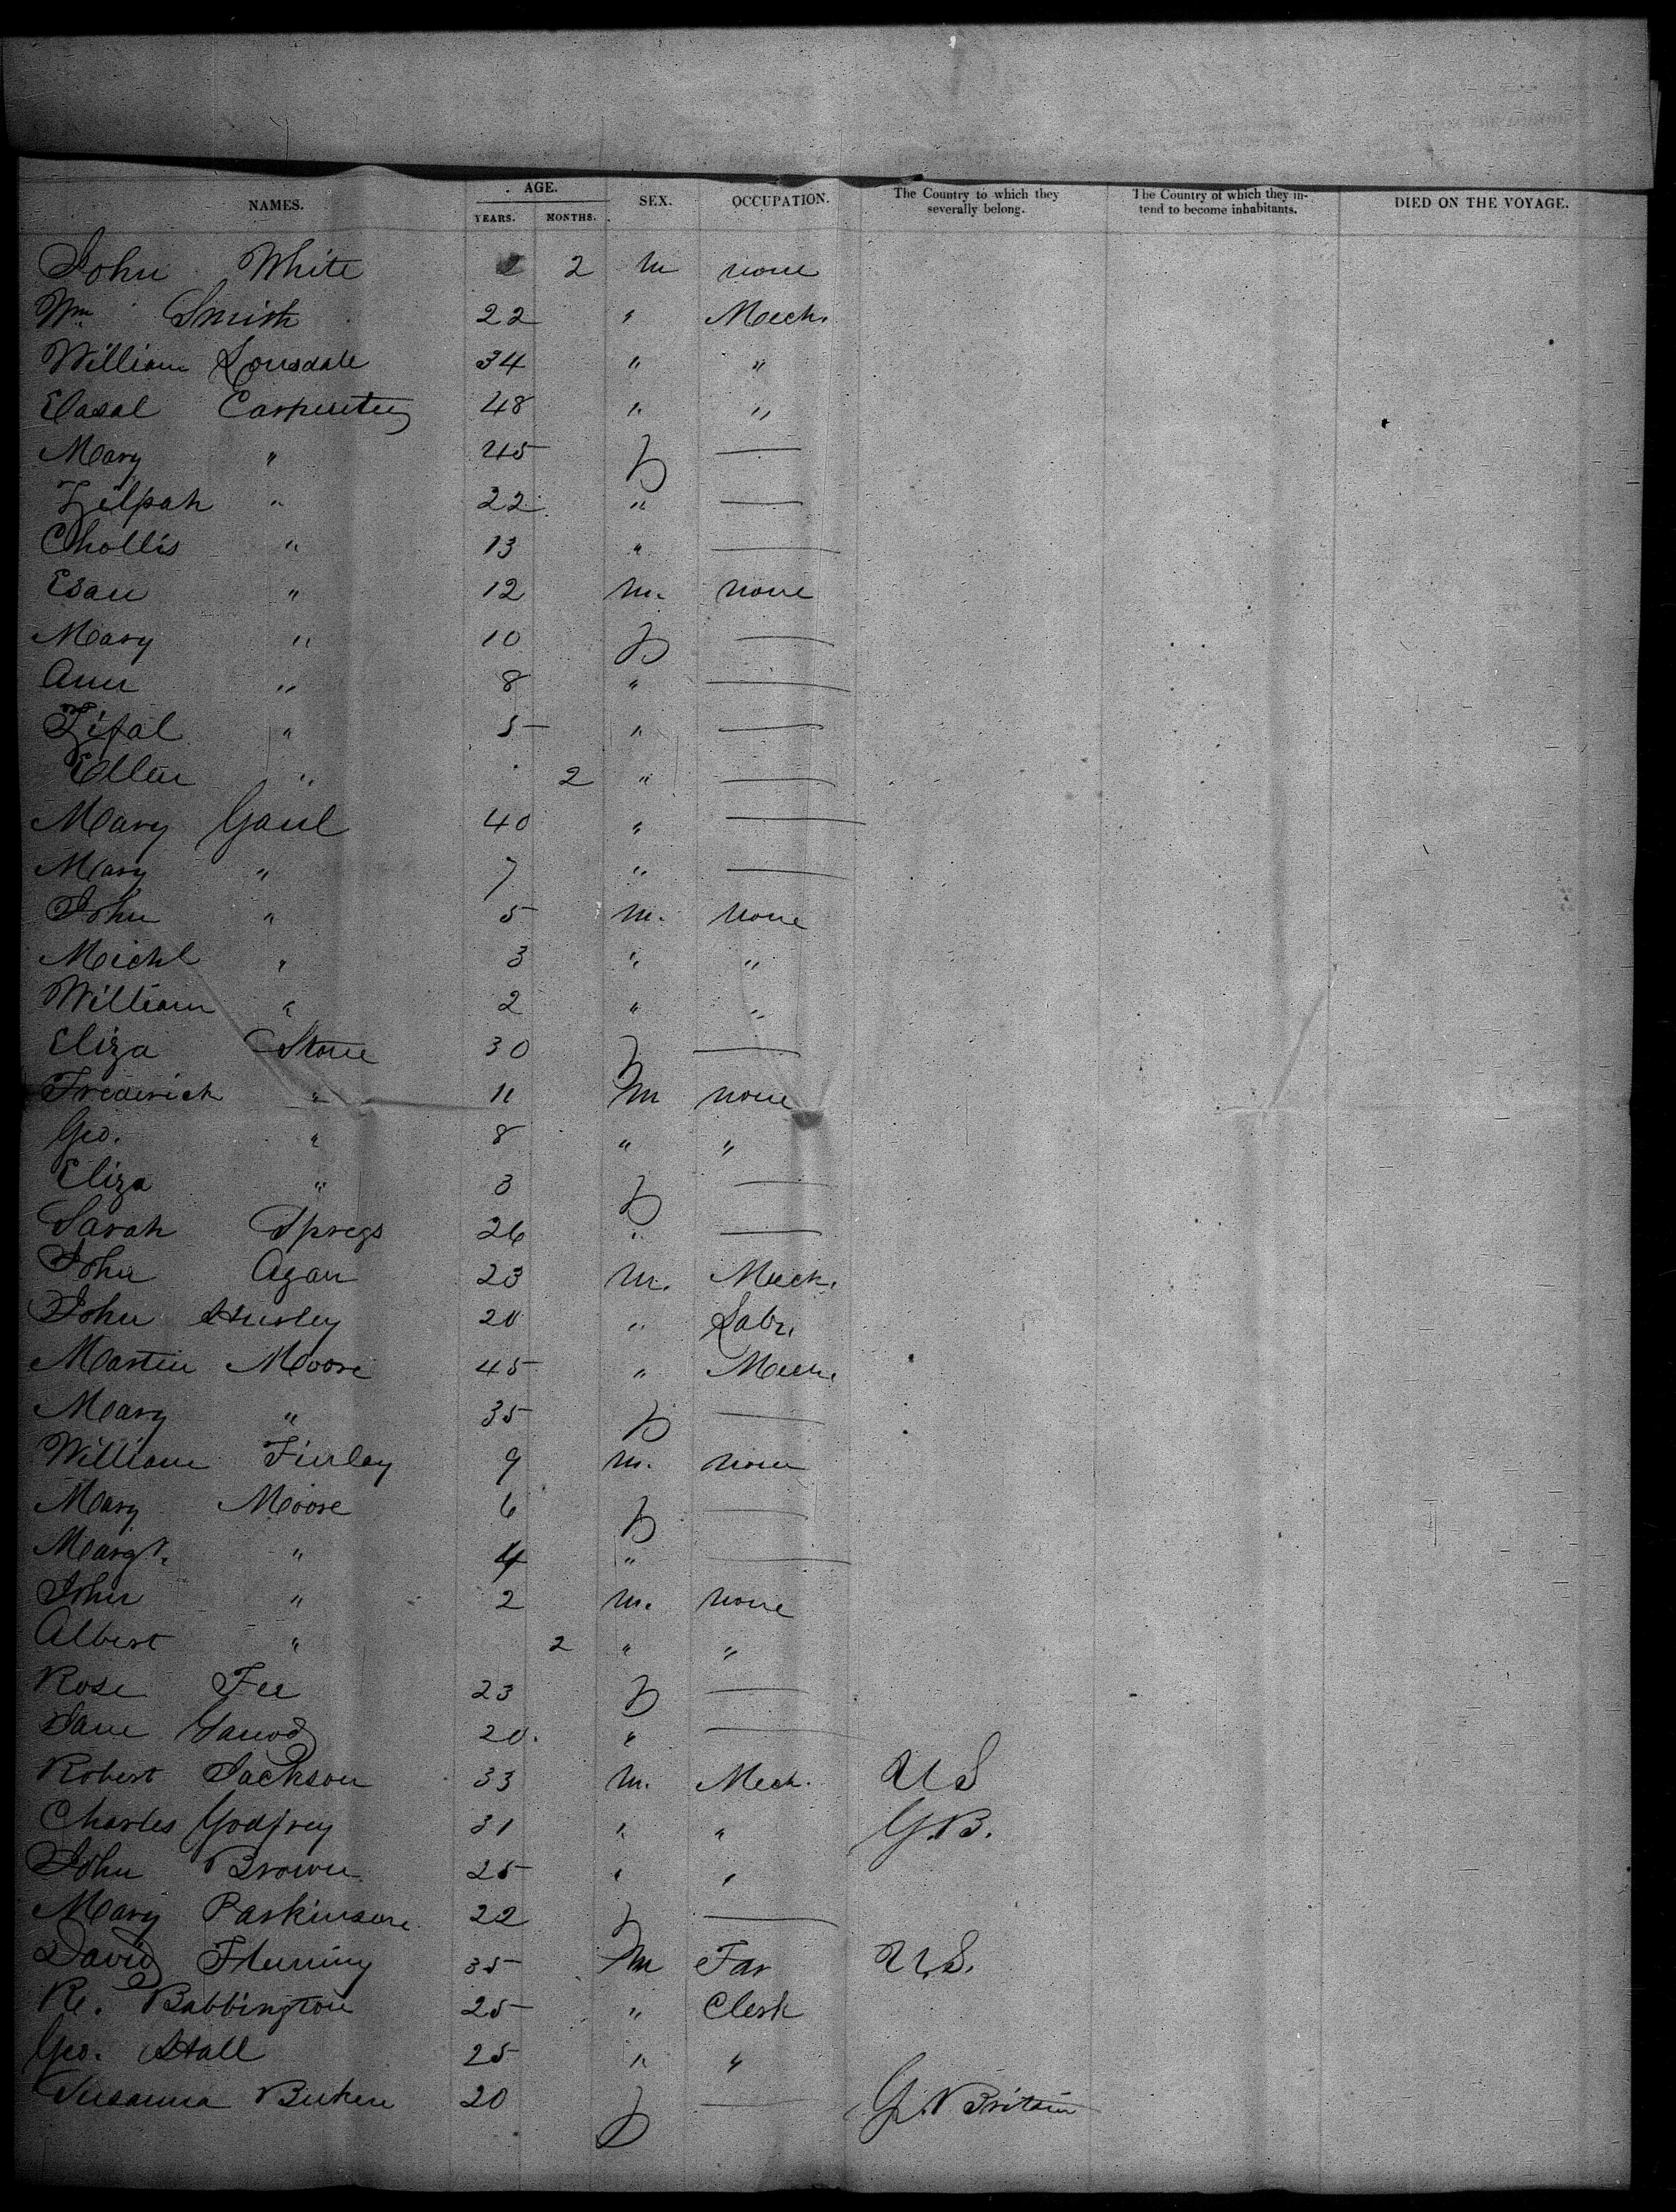 NAMES. AGE. YEARS. MONTHS. SEX. OCCUPATION. The Country to which they severally belong. The Country of which they intend to become inhabitants. DIED ON THE VOYAGE.
John White 2 m none
Wm Smith 22 " Mech.
William Lonsdale 34 " "
Casal Carpenter 48 " "
Mary " 45 f —
Zilpah " 22 " —
Chollis " 13 " —
Esau " 12 m. none
Mary " 10 f —
Ann " 8 " —
Zipal " 5 " —
Ellen " 2 " —
Mary Gaul 40 " —
Mary " 7 " —
John " 5 m. none
Michl " 3 " "
William " 2 " "
Eliza Stone 30 f —
Frederick " 11 m none
Geo. " 8 " "
Eliza " 3 f —
Sarah Spregs 26 " —
John Agan 23 m. Mech.
John Hurley 20 " Labr.
Martin Moore 45 " Mech.
Mary " 35 f —
William Finley 9 m. none
Mary Moore 6 f —
Margt. " 4 " —
John " 2 m. none
Albert " 2 " "
Rose Fee 23 f —
Jane 20. " —
Robert Jackson 33 m. Mech. U S
Charles Godfrey 31 " " G.B.
John Brown 25 " "
Mary Parkinson 22 f —
David Fleming 35 m Far U.S.
Re. Babbington 25 " Clerk
Geo. Hall 25 " "
Susanna 20 f — G. Britain